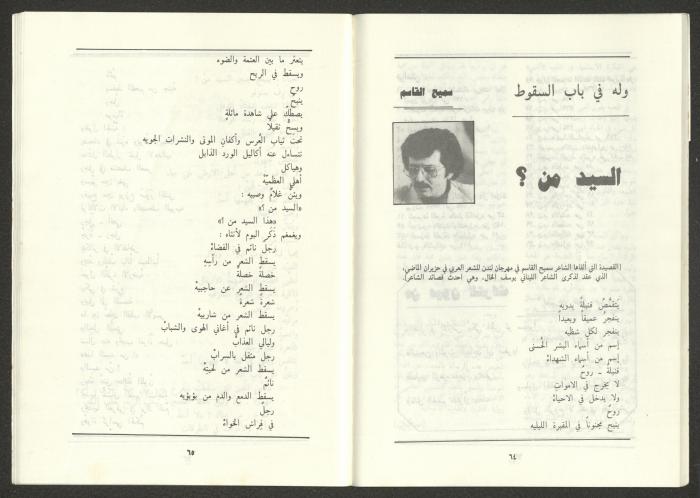 وله في باب السقوط
سميح القاسم
السيد من ؟
(القصيدة التي ألقاها الشاعر سميح القاسم في مهرجان لندن للشعر العربي في حزيران الماضي،
الذي عقد لذكرى الشاعر اللبناني يوسف الخال. وهي أحدث قصائد الشاعر).
يَتَقمَّصُ قنبلةً يدويه
ينفجرُ عميقاً وبعيداً
ينفجر لكلِ شظيه
إسم من أسماء البشر الحُسنى
إسم من أسماء الشهداءْ
قنبلةٌ ـ روحٌ
لا يخرج في الاموات
ولا يدخل في الاحياءْ
روحٌ
ينبح مجنوناً في المقبرة الليليه
٦٤
يتعثر ما بين العتمة والضوء
ويسقط في الريح
روح
ينبحُ
يصطكُّ على شاهدة مائلةٍ
ويسحُّ ثقيلاً
تحت ثياب العُرس وأكفانِ الموتى والنشرات الجويه
تتساءل عنه أكاليل الورد الذابل
وهياكل
أهلي العظميّهْ
ويئنُّ غلامٌ وصبيه :
«السيد من ؟»
«هذا السيد من ؟»
ويغمغم ذَكَر البوم لأنثاه :
رجلٌ نائم في الفضاءْ
يسقط الشعر من رأسِهِ
خصلةً خصلةً
يسقط الشعر عن حاجبيهْ
شعرةً شعرةً
يسقط الشعر من شاربيهْ
رجل نائم في أغاني الهوى والشبابْ
وليالي العذابْ
رجلٌ مثقل بالسرابْ
يسقط الشعر من لحيتهْ
نائمٌ
يسقط الدمع والدم من بؤبؤيه
رجلٌ
في فِراش الخَواءْ
٦٥